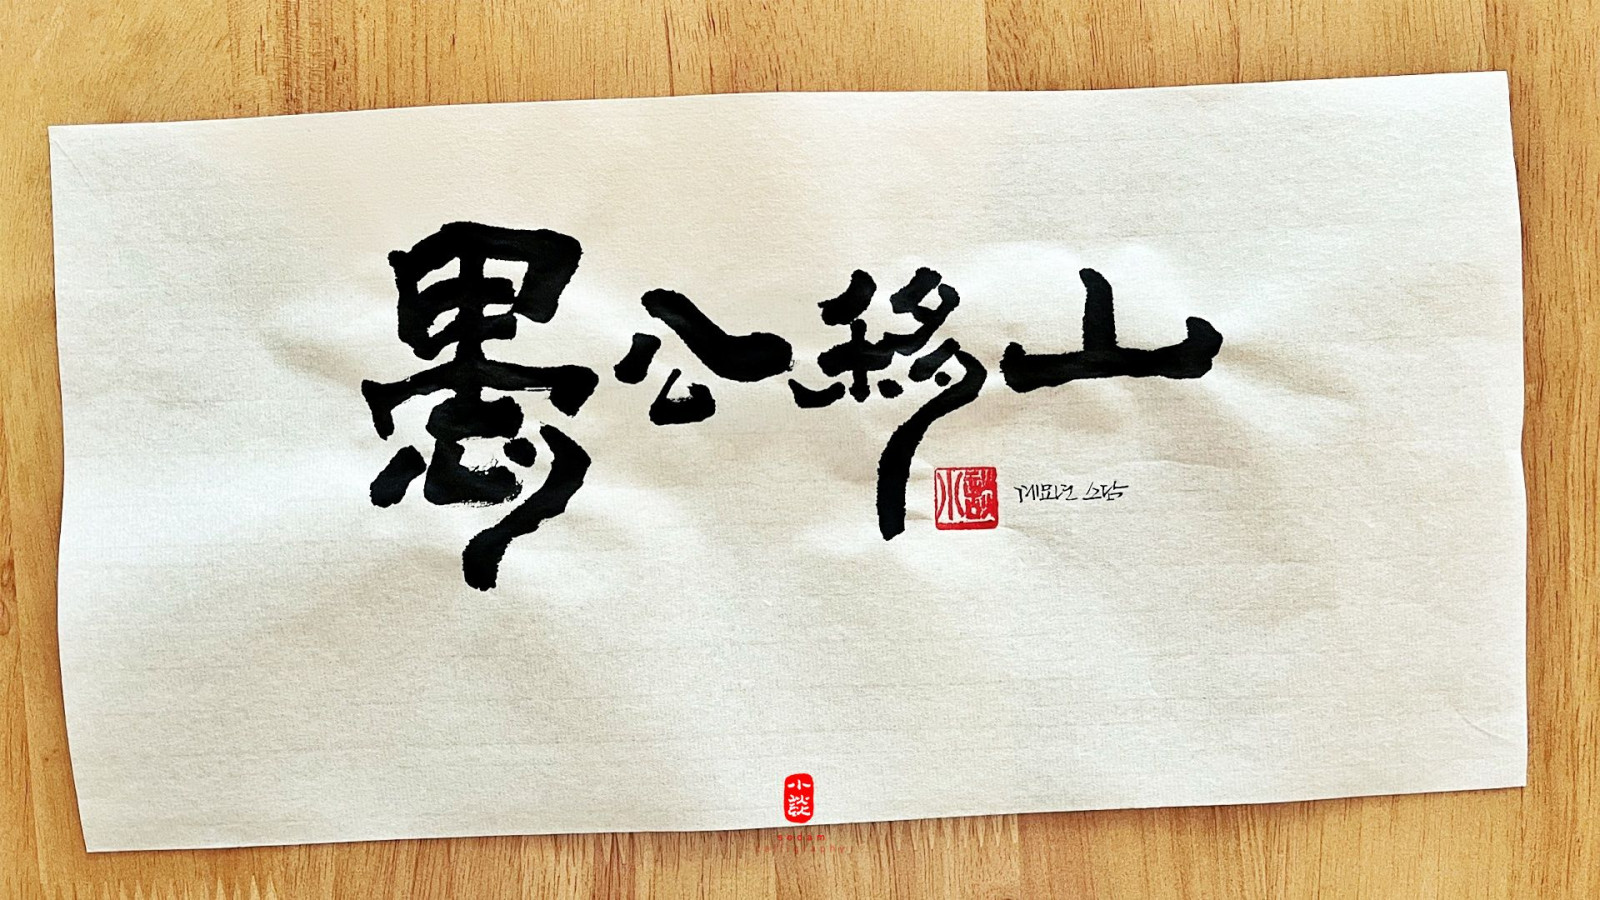 愚公移山
小談 계묘년 소담
小談
sodam